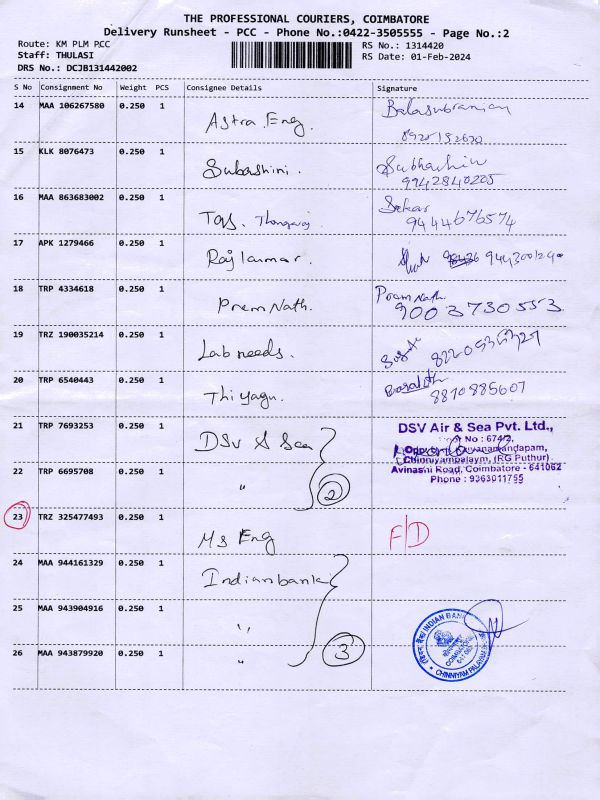 THE PROFESSIONAL COURIERS, COIMBATORE
Delivery Runsheet - PCC - Phone No.:0422-3505555 - Page No.:2
Route: KM PLM PCC
RS No.: 1314420
Staff: THULASI
RS Date: 01-Feb-2024
DRS No.: DCJB131442002
S No Consignment No Weight PCS Consignee Details Signature
14 MAA 106267580 0.250 1 Astra Eng. Balasubramian
15 KLK 8076473 0.250 1 Subashini.
9942840205
16 MAA 863683002 0.250 1 Sekar
9444676574
17 APK 1279466 0.250 1 Rajkumar.
18 TRP 4334618 0.250 1 Prem Nath. Prem Nath.
9003730553
19 TRZ 190035214 0.250 1 Lab needs.
20 TRP 6540443 0.250 1 Thiyagu.
8870885607
21 TRP 7693253 0.250 1 DSV & Sea
DSV Air & Sea Pvt. Ltd.,
No : 674/2,
Chinniyampalaym, (RG Puthur)
Avinashi Road, Coimbatore - 641062
Phone : 9363011755
22 TRP 6695708 0.250 1 " 2
23 TRZ 325477493 0.250 1 Ms Eng F/D
24 MAA 944161329 0.250 1 Indian bank
25 MAA 943904916 0.250 1 "
26 MAA 943879920 0.250 1 " 3
INDIAN BANK
COIMBATORE
641 062
CHINNIYAM PALAYAM